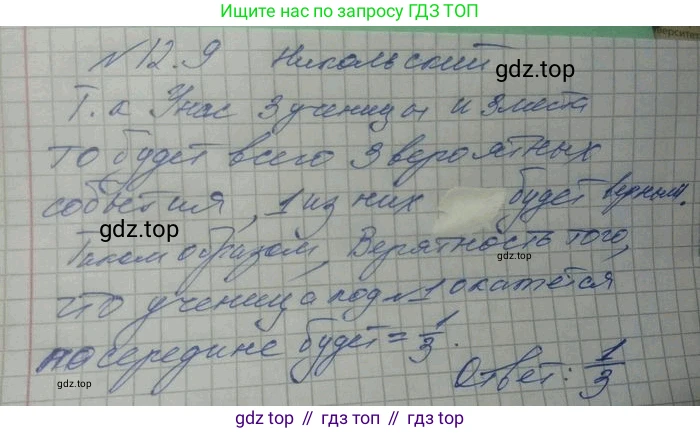 Ищите нас по запросу ГДЗ ТОП
верситет
№12.9 Никольский
gdz.top
Т.к У нас 3 ученицы и 3 места
то будет всего 3 вероятных
события, 1 из них будет верным.
gdz.top
gdz.top
Таким образом, Верятность того,
что ученица под №1 окажется
gdz.top
посередине будет = 1/3.
gdz.top
Ответ: 1/3
gdz.top
gdz top // гдз топ // gdz.top